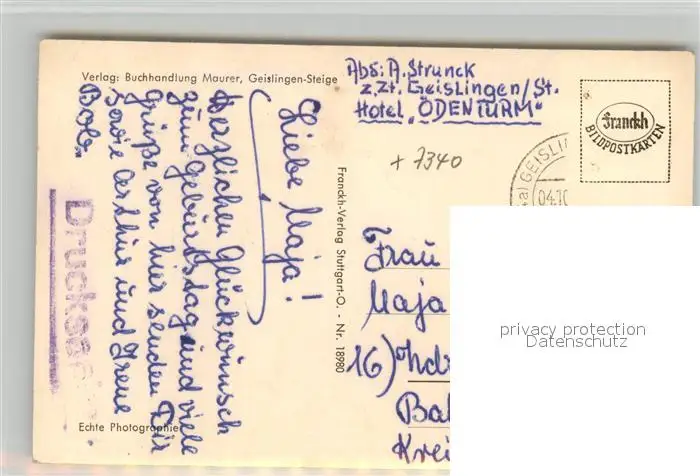 Verlag: Buchhandlung Maurer, Geislingen-Steige
Abs: A. Strunck
z.Zt. Geislingen/St.
Hotel „ÖDENTURM"
Franckh
BILDPOSTKARTEN
+ 7340
GEISLIN
04.10
Liebe Maja!
Herzlichen Glückwunsch
zum Geburtstag und viele
Grüße von hier senden Dir
sowie Arthur und Irene
Bob.
Drucksa
Franckh-Verlag Stuttgart-O. - Nr. 18980
Frau
Maja
16)
Bal
Krei
privacy protection
Datenschutz
Echte Photographie